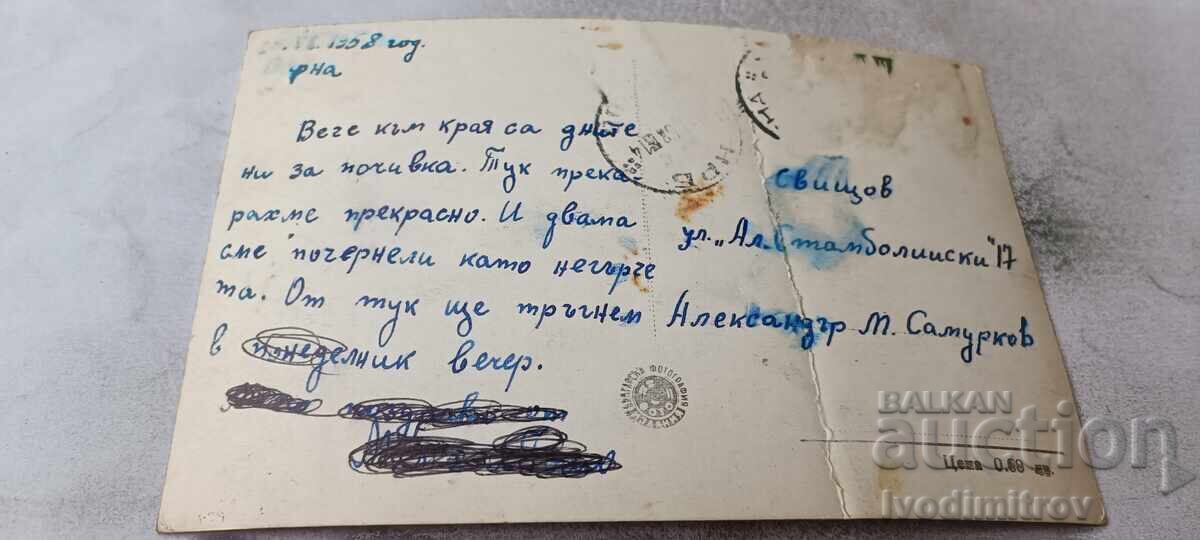 1958 год.
Варна
Вече към края са дните
ни за почивка. Тук прека-
рахме прекрасно. И двама
сме почернели като негърче
та. От тук ще тръгнем
в понеделник вечер.
Свищов
ул. „Ал. Стамболииски" 17
Александър М. Самурков
БЪЛГАРСКА ФОТОГРАФИЯ
Цена 0.60 лв.
BALKAN
auction
Ivodimitrov